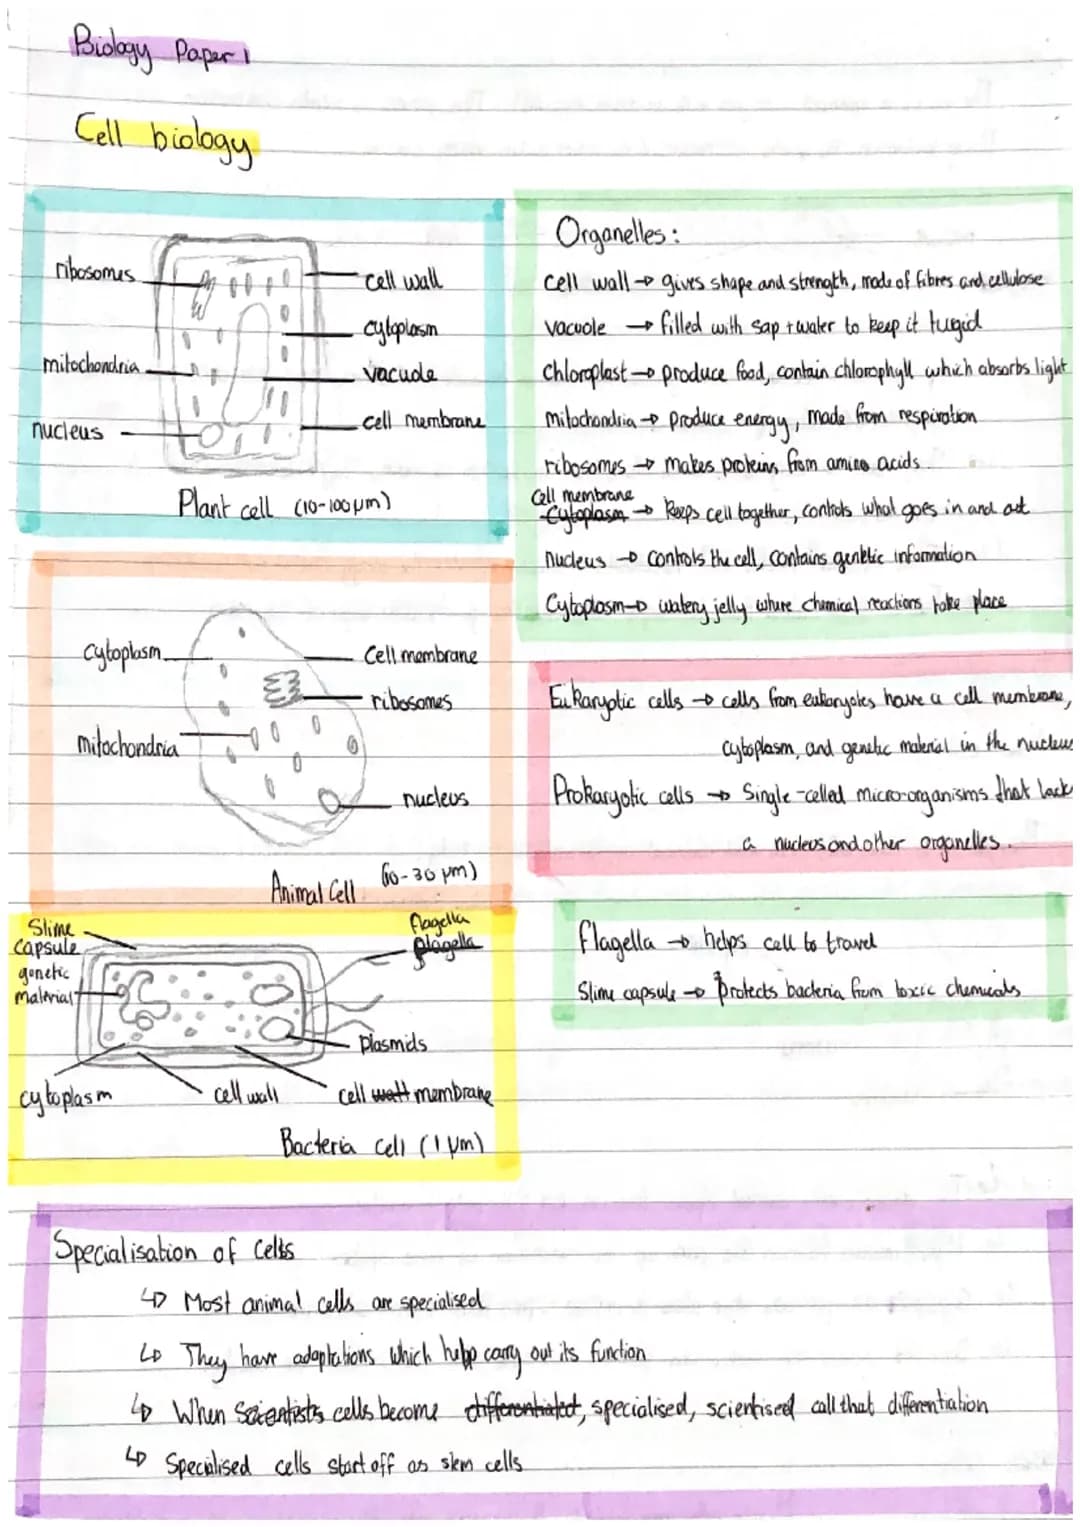 Biology Paper 1
Cell biology
ribosomes
mitochondria
nucleus
cell wall
cytoplasm
vacuole
cell membrane
Plant cell (10-100μm)
Organelles:
cell wall → gives shape and strength, made of fibres and cellulose
vacuole → filled with sap + water to keep it turgid
chloroplast → produce food, contain chlorophyll which absorbs light
mitochondria → produce energy, made from respiration
ribosomes → makes proteins from amino acids.
Cell membrane
Cytoplasm → keeps cell together, controls what goes in and out
nucleus → controls the cell, contains genetic information
Cytoplasm → watery jelly where chemical reactions take place
cytoplasm
mitochondria
Cell membrane
ribosomes
nucleus
Animal Cell (10-30 μm)
Eukaryotic cells → cells from eukaryotes have a cell membrane,
cytoplasm, and genetic material in the nucleus
Prokaryotic cells → Single-celled micro-organisms that lack
a nucleus and other organelles.
Slime
capsule
genetic
material
flagella
plagella
plasmids
cytoplasm
cell wall
cell wall membrane
Bacteria cell (1 μm)
flagella → helps cell to travel
Slime capsule → Protects bacteria from toxic chemicals
Specialisation of Cells
↳ Most animal cells are specialised
↳ They have adaptations which help carry out its function
↳ When Scientists cells become differentiated, specialised, scientised call that differentiation
↳ Specialised cells start off as stem cells